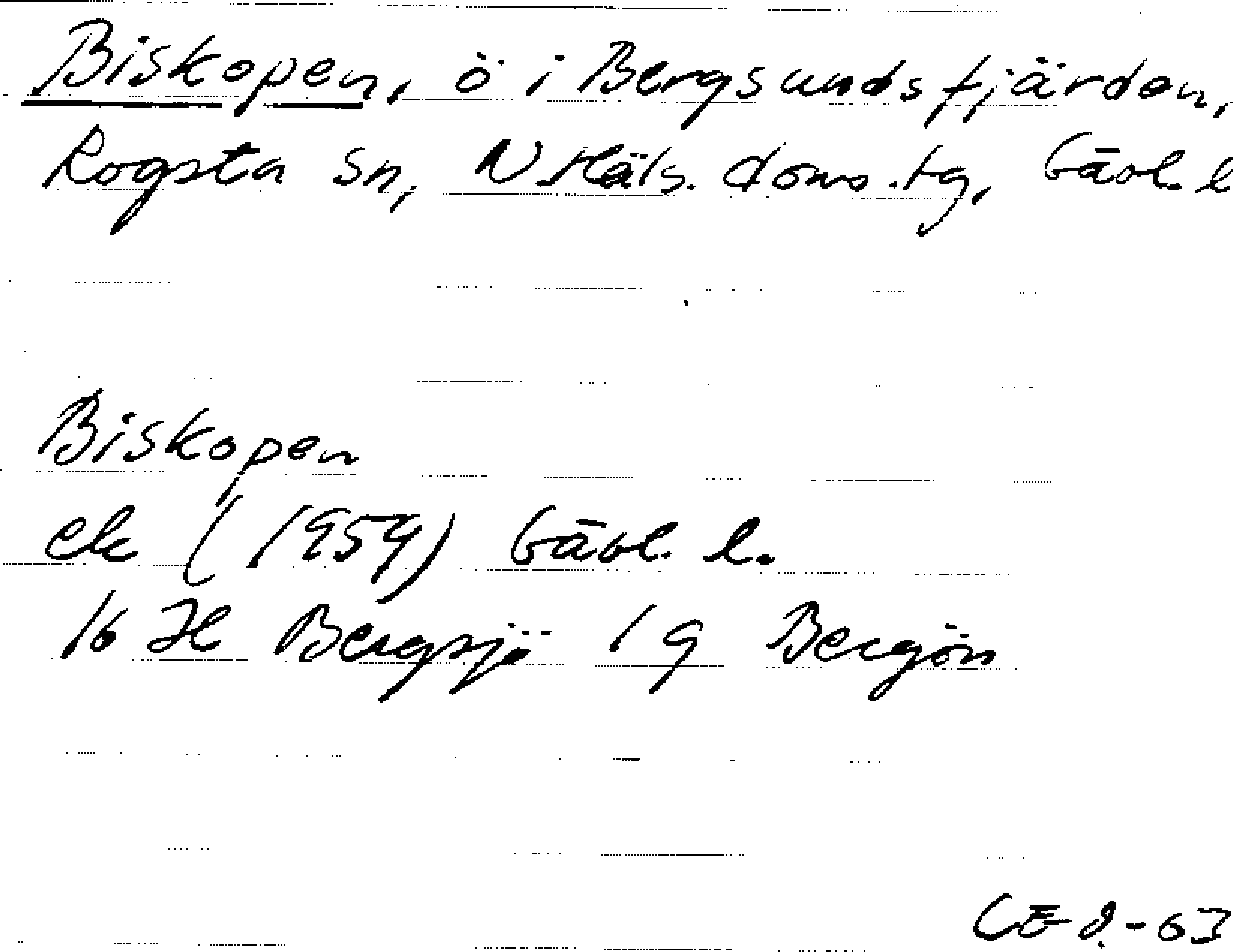 Biskopen, ö i Bergsundsfjärden,
Rogsta sn, N Häls. doms.tg, Gävl. l
Biskopen
ek (1959) Gävl. l.
16 H Bergsjö 1 g Bergön
CE 2-63